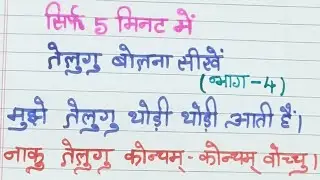 सिर्फ 5 मिनट में
तेलुगु बोलना सीखें
(भाग-4)
मुझे तेलुगु थोड़ी थोड़ी आती हैं।
नाकु तेलुगु कोन्चम्-कोन्चम् वोच्चु।